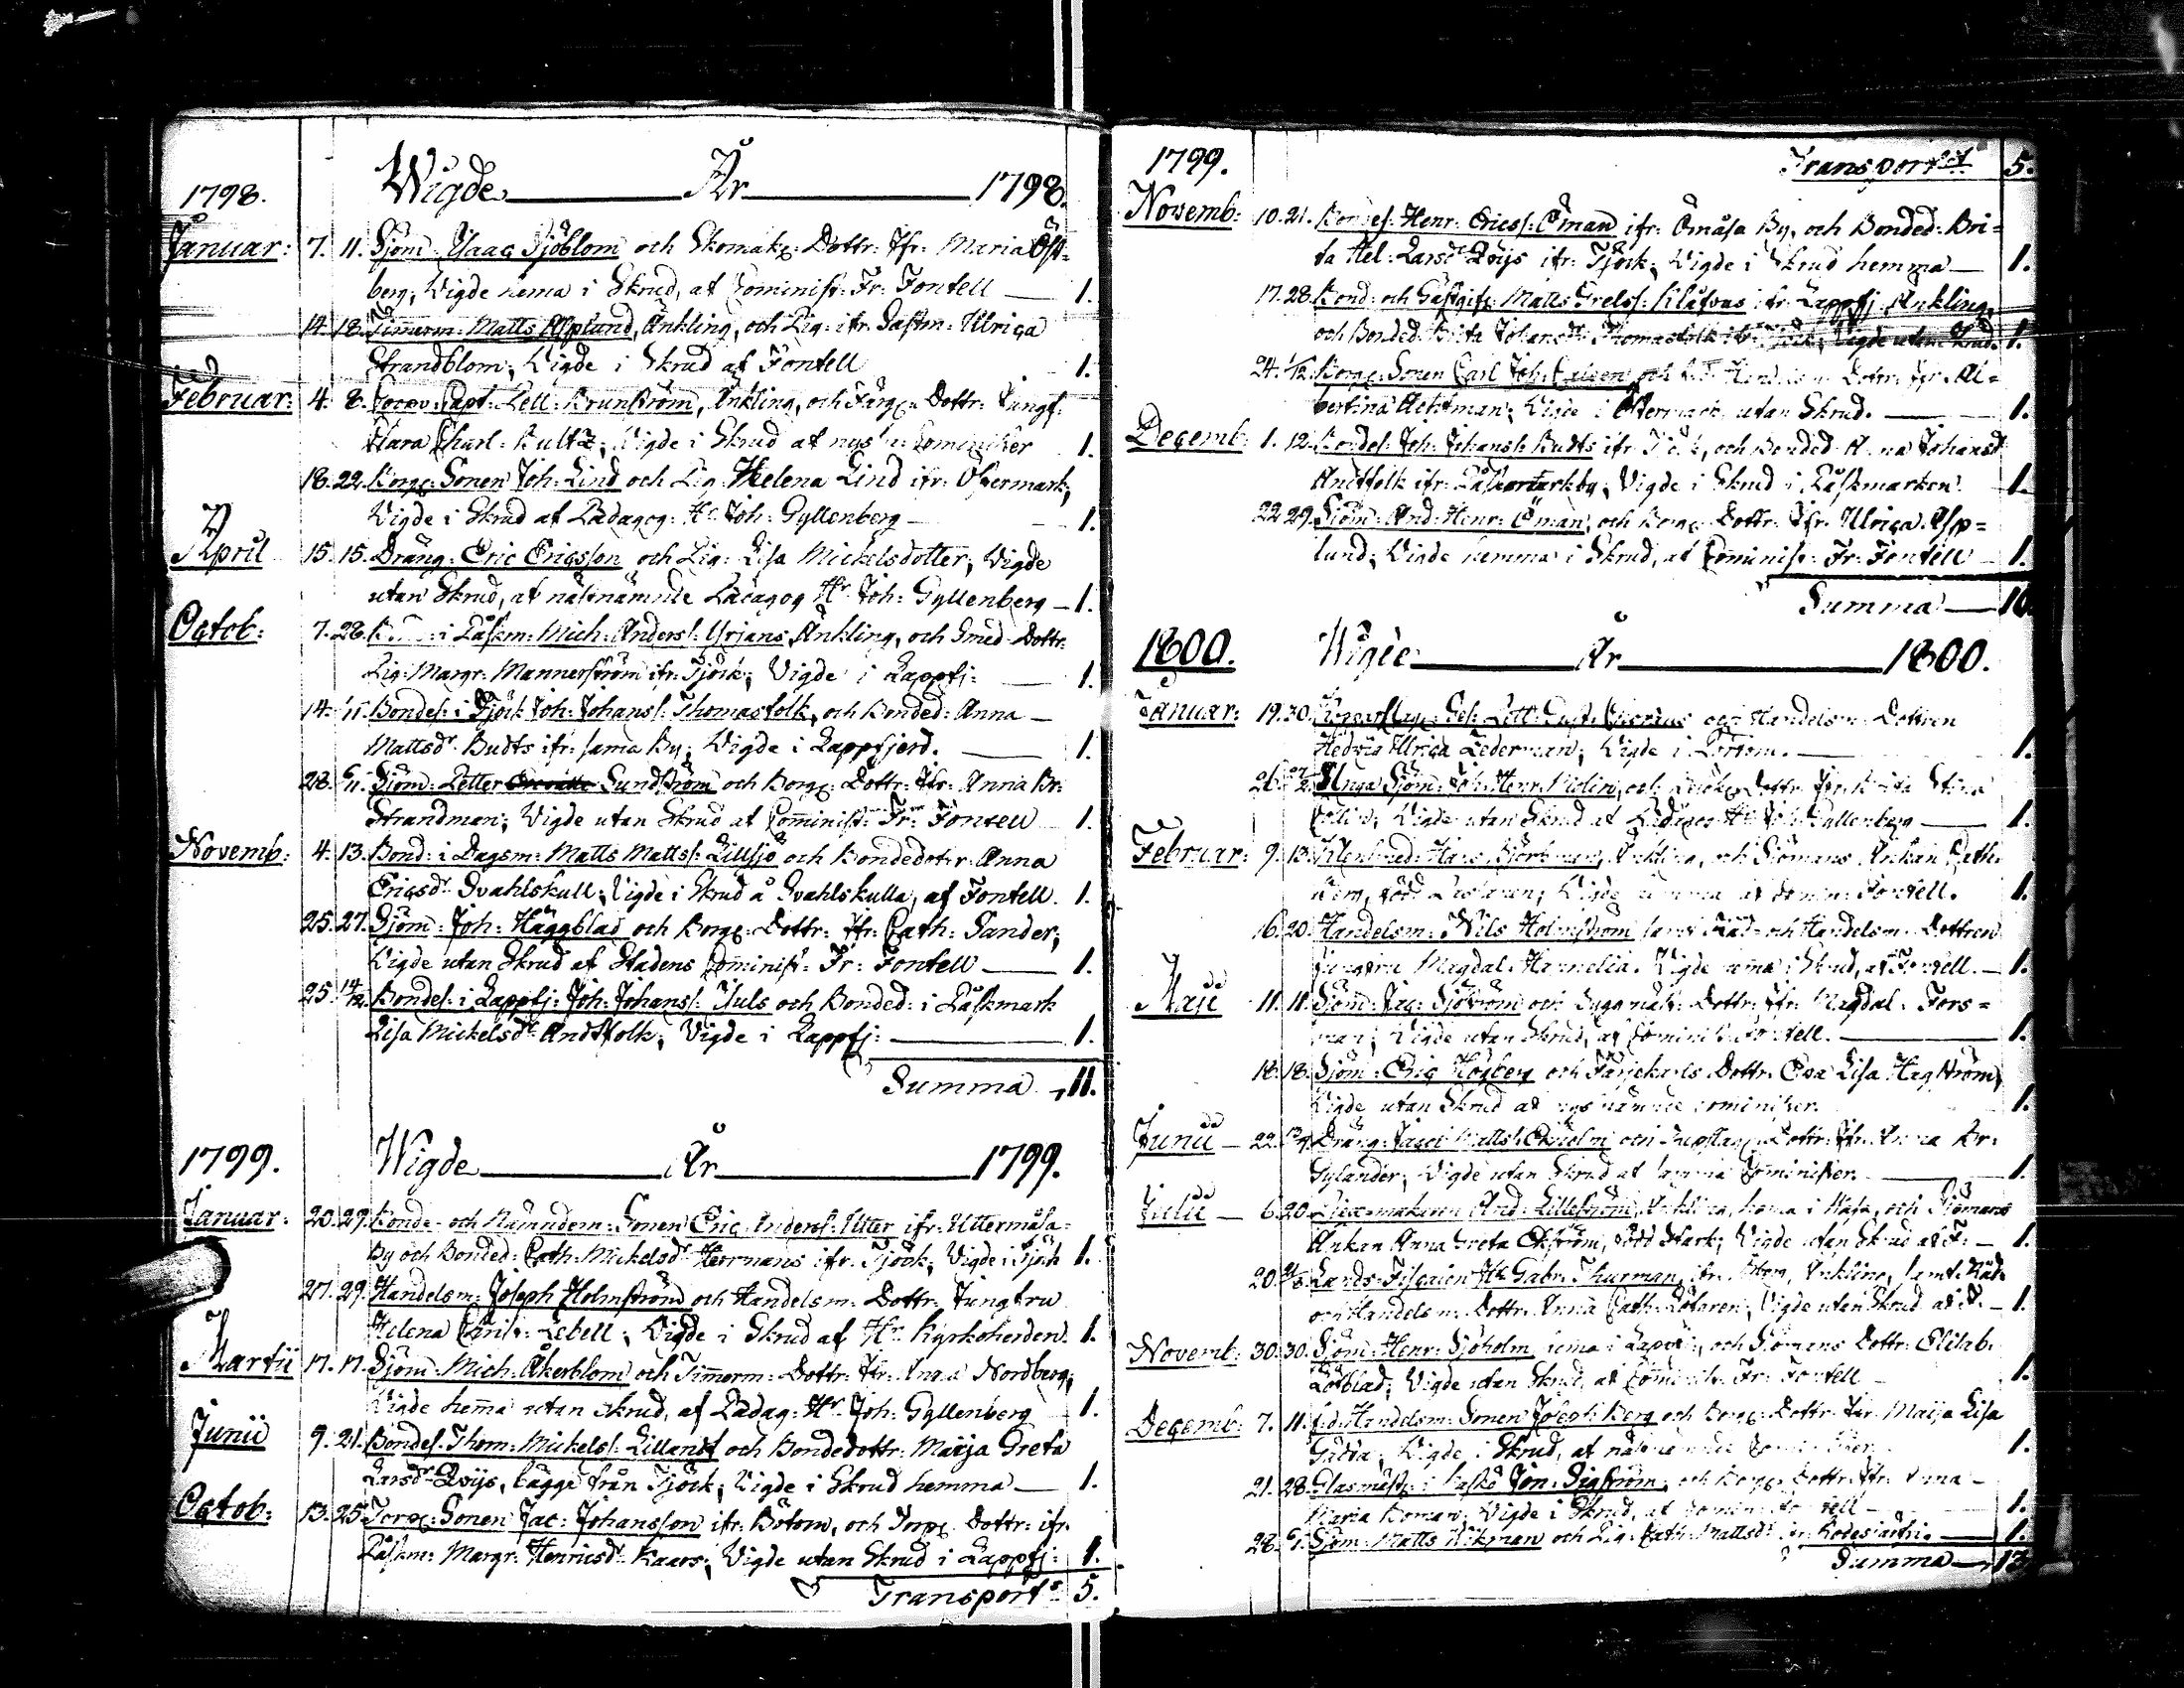 1798. Wigde År 1798.
Januar: 7. 11. Sjöm: Isaac Sjöblom och Skomak: Dottr: Jfr: Maria Öst-
berg; Vigde hema i Skrud, af Cominist: Fr: Fontell 1.
14. 18. Timerm: Matts Asplund, Änkling, och Pig: ifr: Sastm: Ulrica
Strandblom; Vigde i Skrud af Fontell 1.
Februar: 4. 8. Brunström, Änkling, och Färg: Dottr: Jungf:
Clara Charl: Bultz; Vigde i Skrud af Cominister 1.
18. 22. Borg: Sonen Joh: Lind och Pig: Helena Lind ifr: Östermark;
Vigde i Skrud af Pædagog: Hr Joh: Gyllenberg 1.
April 15. 15. Dräng: Eric Ericsson och Pig: Lisa Mickelsdotter; Vigde
utan Skrud, af näst nämnde Pædagog Hr Joh: Gyllenberg 1.
Octob: 7. 28. i Påskm: Mich: Anders: Yrjans Änkling, och Smed-Dottr:
Pig: Margr: Mannerström ifr: Tjöck; Vigde i Lappfj: 1.
14. Bondes: i Tjöck Joh: Johans: Thomasfolk, och Bonded: Anna
Mattsdr Budts ifr: sama By; Vigde i Lappfjerd. 1.
28. Sjöm: Petter Sundström och Borg: Dottr: Jfr: Anna Br:
Strandman; Vigde utan Skrud af Cominist: Fr: Fontell 1.
Novemb: 4. 13. Bond: i Dagsm: Matts Matts: Lillsjö och Bondedotr: Anna
Ericsdr Svahlskull; Vigde i Skrud å Svahlskulla, af Fontell. 1.
25. 27. Sjöm: Joh: Häggblad och Borg: Dottr: Jfr: Cath: Sander;
Vigde utan Skrud af Stadens Cominist: Fr: Fontell 1.
25. 14/12. Bondes: i Lappfj: Joh: Johans: Juls och Bonded: i Påskmark
Lisa Mickelsdr Andtfolk; Vigde i Lappfj: 1.
Summa 11.
1799. Wigde År 1799.
Januar: 20. 29. Bonde- och Nämndem: Sonen Eric Anders: Utter ifr: Uttermåsa
By och Bonded: Cath: Mickelsdr Herrnans ifr: Tjöck; Vigde i Tjöck 1.
27. 29. Handelsm: Joseph Holmström och Handelsm: Dottr: Jungfru
Helena Christ: Lebell; Vigde i Skrud af Hr Kyrkoherden. 1.
Martii 17. 17. Sjöm: Mich: Åkerblom och Timerm: Dottr: Jfr: Anna Nordberg;
Vigde hema utan skrud, af Pædag: Hr Joh: Gyllenberg 1.
Junii 9. 21. Bondes: Thom: Mickels: Lillanst och Bondedottr: Maija Greta
Larsdr Qvijs, bägge från Tjöck; Vigde i Skrud hemma 1.
Octob: 13. 25. Torp: Sonen Jac: Johansson ifr: Bötom, och Torp: Dottr: ifr:
Påskm: Margr: Henricsdr Kaars; Vigde utan Skrud i Lappfj: 1.
Transport: 5.
1799. Transport 5.
Novemb: 10. 21. Bondes: Henr: Erics: Öman ifr: Ömåsa By, och Bonded: Bri=
ta Hel: Larsdr Qvijs ifr: Tjöck; Vigde i Skrud hemma 1.
17. 28. Bond: och Gästgif: Matts Grels: Klåfvus ifr: Lappfj Änkling,
och Bonded: Brita Johansdr Thomasfolk ifr: Tjöck; Vigde utan Skrud 1.
24. Borg: Sonen Carl Joh: och Dottr: Jfr: Al=
bertina Achtman; Vigde i Östermark utan Skrud. 1.
Decemb: 1. 12. Bondes: Joh: Johans: Budts ifr: Tjöck, och Bonded: Anna Johansd
Andtfolk ifr: Påskmarkby; Vigde i Skrud i Påskmarken. 1.
22 29. Sjöm: And: Henr: Öman, och Borg: Dottr: Jfr: Ulrica Asp=
lund; Vigde hemma i Skrud, af Cominist: Fr: Fontell 1.
Summa 10
1800. Wigde År 1800.
Januar: 19. 30. och Handelsm: Dottren
Hedvig Ulrica Lederman; Vigde i Bötom. 1.
26. Unga Sjöm: Joh: Henr: Molin, och Dottr: Jfr: Brita Stina
Vigde utan Skrud af Pædagog Hr Joh: Gyllenberg 1.
Februar: 9. 13. Hans Björkman, Änkling, och Sjömans Änkan Cath:
född Vigde hemma af Comin: Fontell. 1.
16. 20. Handelsm: Nils Holmström samt Råd- och Handelsm: Dottren
Jungfru Magdal: Hannelia. Vigde hema i Skrud, af Fontell. 1.
Maji 11. 11. Sjöm: Jac: Sjöström och Dottr: Jfr: Magdal: Fors=
man; Vigde utan Skrud, af Cominist: Fontell. 1.
18. 18. Sjöm: Eric Högberg och Färjekarls Dottr: Eva Lisa Hagström,
Vigde utan Skrud af nysnämnde Cominister. 1.
Junii 22. Dräng: Matts: Ekholm och Dottr: Jfr: Anna Br:
Gylander; Vigde utan Skrud af samma Cominister. 1.
Julii 6. 20. And: Lilleström, Änkling, hema i Wasa, och Sjömans
Änkan Anna Greta Ekström, född Stark; Vigde utan Skrud af F: 1.
20. Lands-Fiscalen Hr Gabr: Thurman, ifr: Änkling, samt Råd-
och Handelsm: Dottr: Anna Cath: Vigde utan Skrud af F. 1.
Novemb: 30. 30. Sjöm: Henr: Sjöholm hema i Lappfj:, och Sjömans Dottr: Elisab:
Löfblad; Vigde utan Skrud, af Cominist: Fr: Fontell 1.
Decemb: 7. 11. Handelsm: Sonen Joseph Berg och Borg: Dottr: Jfr: Maija Lisa
Vigde i Skrud, af nästnämnde Cominister. 1.
21. 28. Glasmäst: i Kaskö Jon: Sigström, och Borg: Dottr: Jfr: Anna
Maria Boman; Vigde i Skrud, af Comin: Fontell 1.
28. Sjöm: Matts Wikman och Pig: Cath: Mattsdr 1.
Summa 13